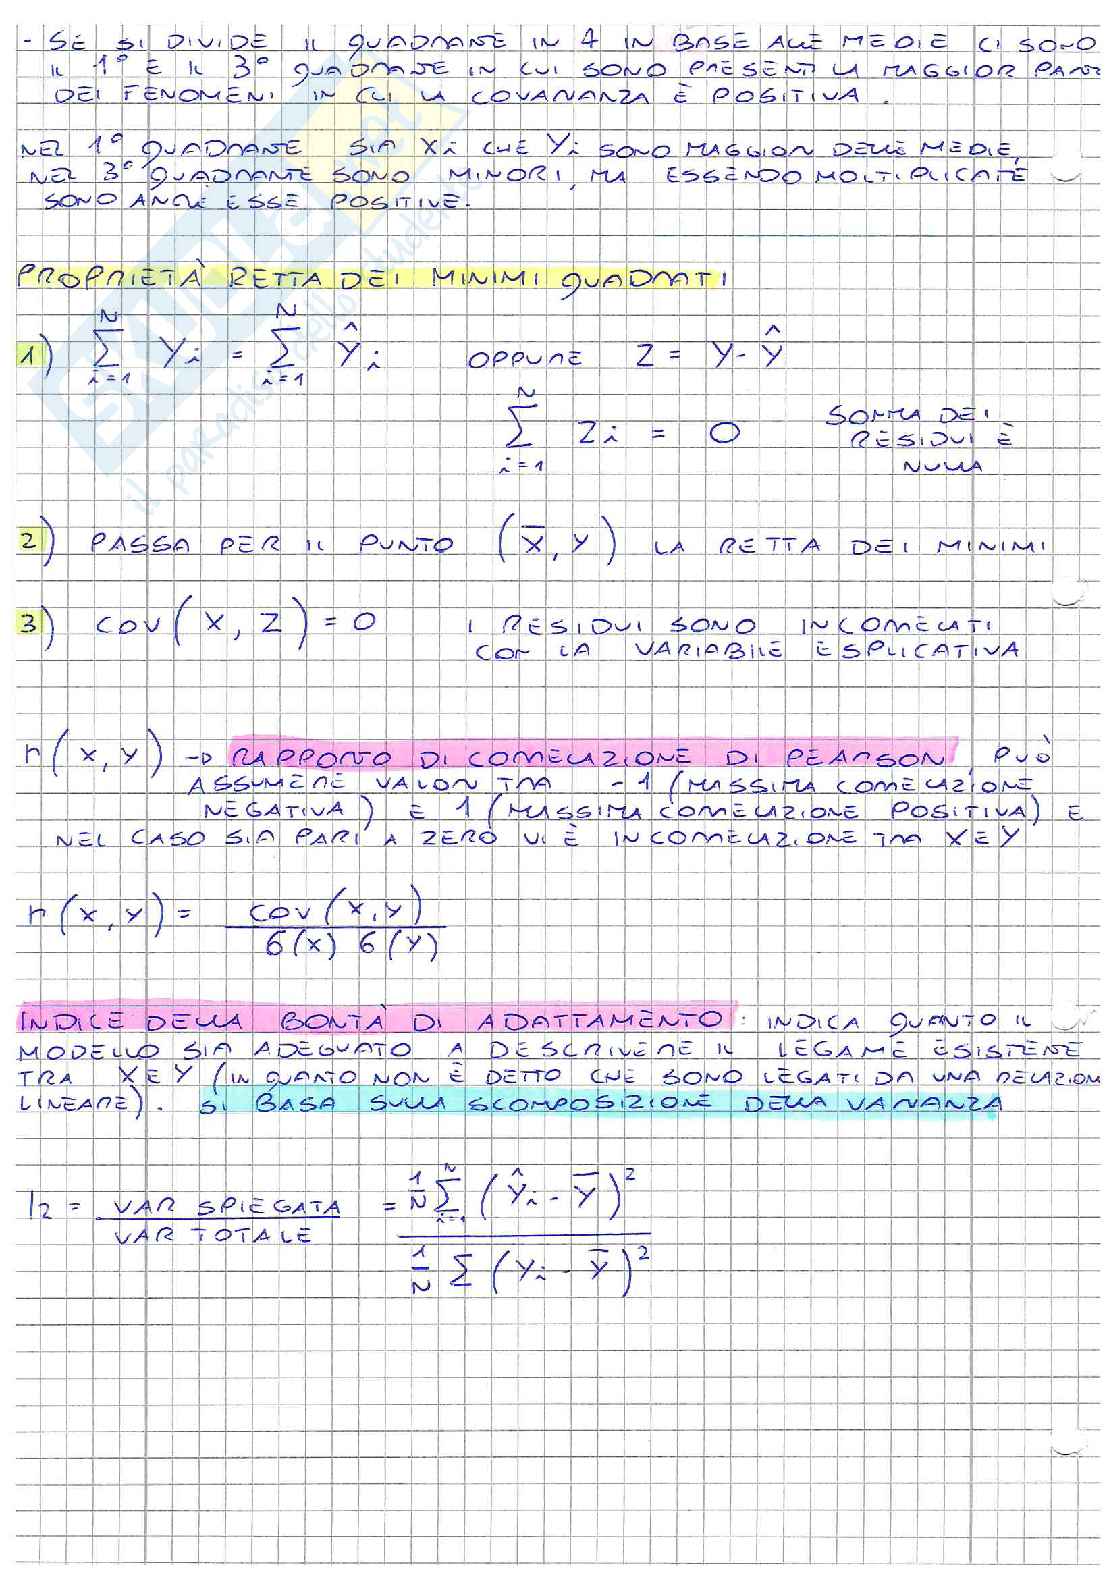 - SE SI DIVIDE IL QUADRANTE IN 4 IN BASE ALLE MEDIE CI SONO
IL 1° E IL 3° QUADRANTE IN CUI SONO PRESENTI LA MAGGIOR PARTE
DEI FENOMENI IN CUI LA COVARIANZA È POSITIVA.
NEL 1° QUADRANTE SIA Xi CHE Yi SONO MAGGIORI DELLE MEDIE,
NEL 3° QUADRANTE SONO MINORI, MA ESSENDO MOLTIPLICATE
SONO ANCHE ESSE POSITIVE.
PROPRIETÀ RETTA DEI MINIMI QUADRATI
1) ∑_{i=1}^{N} Yi = ∑_{i=1}^{N} Ŷi OPPURE Z = Y - Ŷ
∑_{i=1}^{N} Zi = 0 SOMMA DEI
RESIDUI È
NULLA
2) PASSA PER IL PUNTO (X̄, Y) LA RETTA DEI MINIMI
3) COV(X, Z) = 0 I RESIDUI SONO INCORRELATI
CON LA VARIABILE ESPLICATIVA
r(X, Y) → RAPPORTO DI CORRELAZIONE DI PEARSON, PUÒ
ASSUMERE VALORI TRA -1 (MASSIMA CORRELAZIONE
NEGATIVA) E 1 (MASSIMA CORRELAZIONE POSITIVA) E
NEL CASO SIA PARI A ZERO VI È INCORRELAZIONE TRA X E Y
r(X, Y) = COV(X, Y) / б(X) б(Y)
INDICE DELLA BONTÀ DI ADATTAMENTO: INDICA QUANTO IL
MODELLO SIA ADEGUATO A DESCRIVERE IL LEGAME ESISTENTE
TRA X E Y (IN QUANTO NON È DETTO CHE SONO LEGATI DA UNA RELAZION
LINEARE). SI BASA SULLA SCOMPOSIZIONE DELLA VARIANZA
I2 = VAR SPIEGATA / VAR TOTALE = 1/N ∑_{i=1}^{N} (Ŷi - Ȳ)² / 1/N ∑ (Yi - Ȳ)²